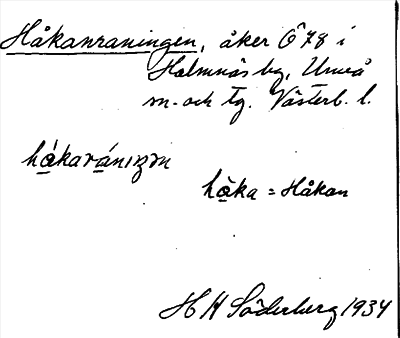 Håkanraningen, åker Ö 78 i
Holmnäs by, Umeå
m. och tg. Västerb. l.
hákaránıŋən
hàka = Håkan
H H Söderberg 1934